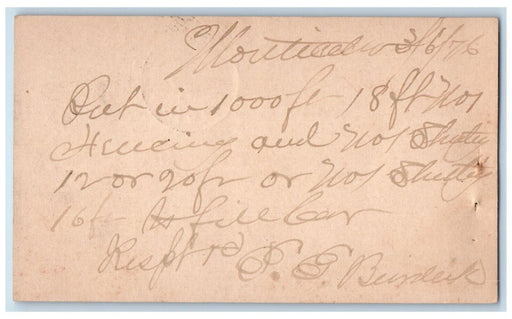 Monticello 3/6/76
Put in 1000 ft 18 ft No1
Fencing and No1
12 or 20 ft or No1
16 ft to fill Car
Respt